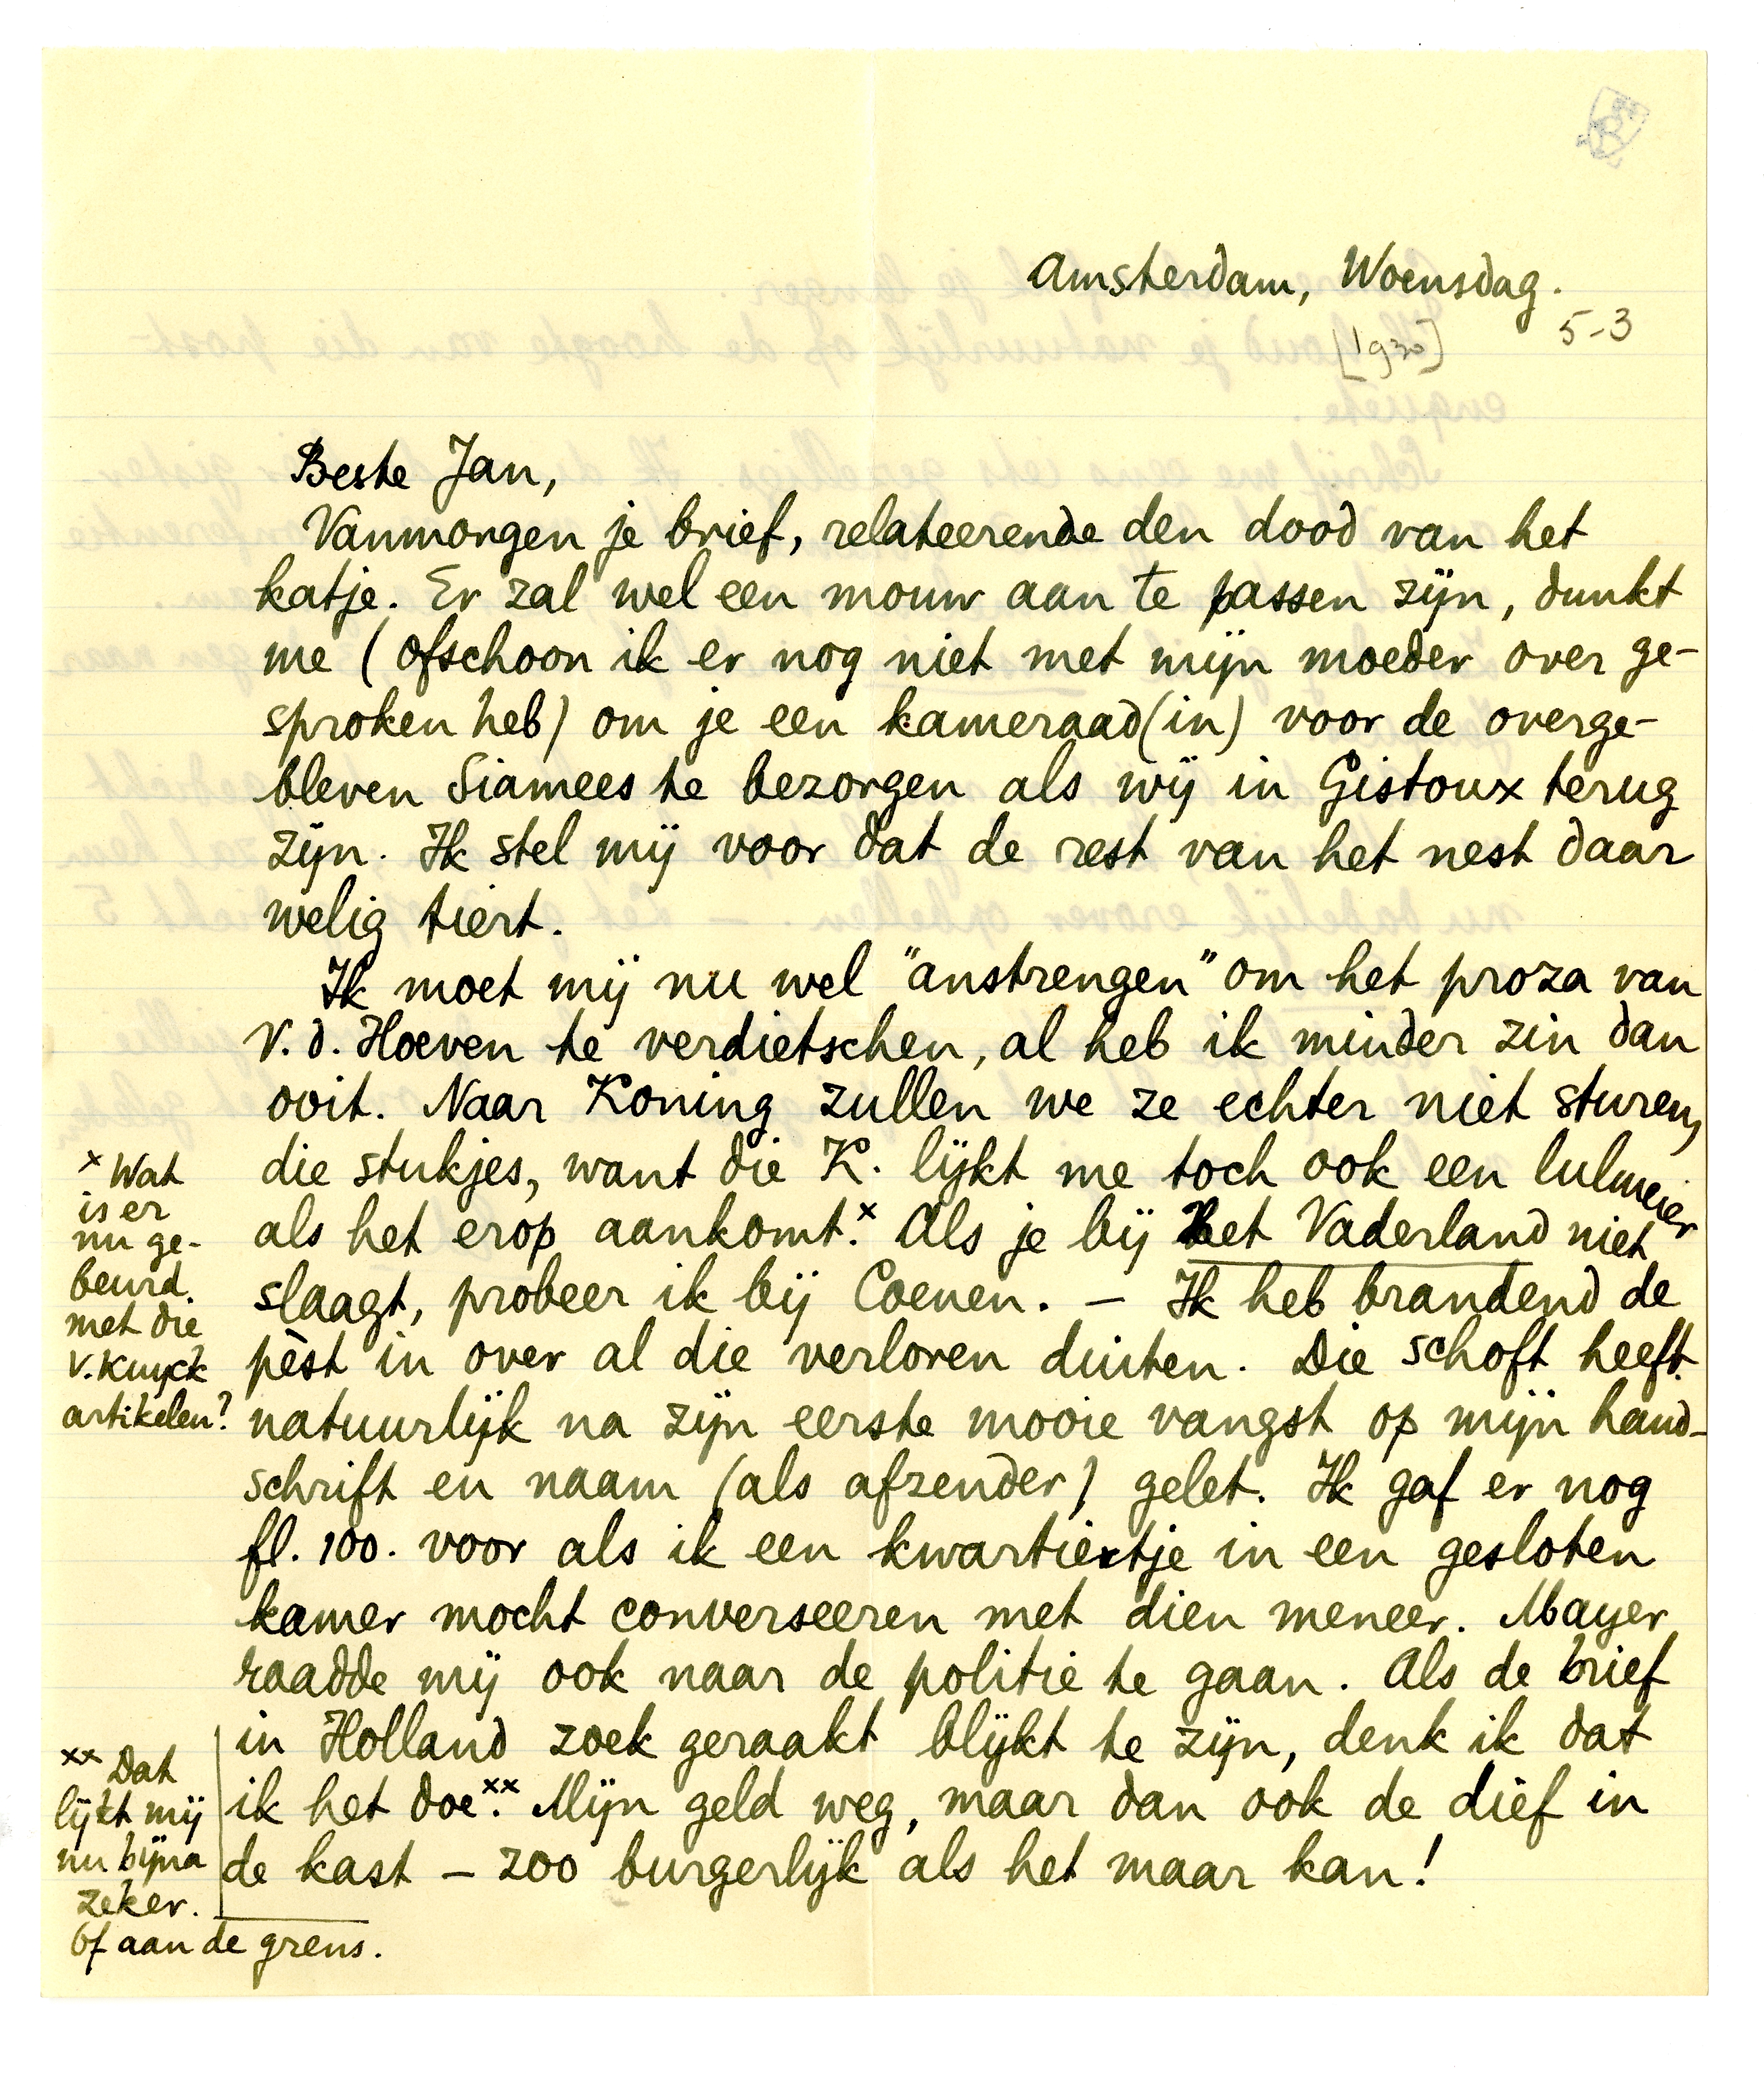 Amsterdam, Woensdag.
5-3
[1930]
Beste Jan,
Vanmorgen je brief, relateerende den dood van het
katje. Er zal wel een mouw aan te passen zijn, dunkt
me (ofschoon ik er nog niet met mijn moeder over ge-
sproken heb) om je een kameraad(in) voor de overge-
bleven Siamees te bezorgen als wij in Gistoux terug
zijn. Ik stel mij voor dat de rest van het nest daar
welig tiert.
Ik moet mij nu wel "anstrengen" om het proza van
v.d. Hoeven te verdietschen, al heb ik minder zin dan
ooit. Naar Koning zullen we ze echter niet sturen,
die stukjes, want die K. lijkt me toch ook een lulmeier
als het erop aankomt.x Als je bij Het Vaderland niet
slaagt, probeer ik bij Coenen. – Ik heb brandend de
pèst in over al die verloren duiten. Die schoft heeft
natuurlijk na zijn eerste mooie vangst op mijn hand-
schrift en naam (als afzender) gelet. Ik gaf er nog
fl. 100. voor als ik een kwartiertje in een gesloten
kamer mocht converseeren met dien meneer. Mayer
raadde mij ook naar de politie te gaan. Als de brief
in Holland zoek geraakt blijkt te zijn, denk ik dat
ik het doe.xx Mijn geld weg, maar dan ook de dief in
de kast – zoo burgerlijk als het maar kan!
x Wat
is er
nu ge-
beurd
met die
v. Kuyck
artikelen?
xx Dat
lijkt mij
nu bijna
zeker.
Of aan de grens.